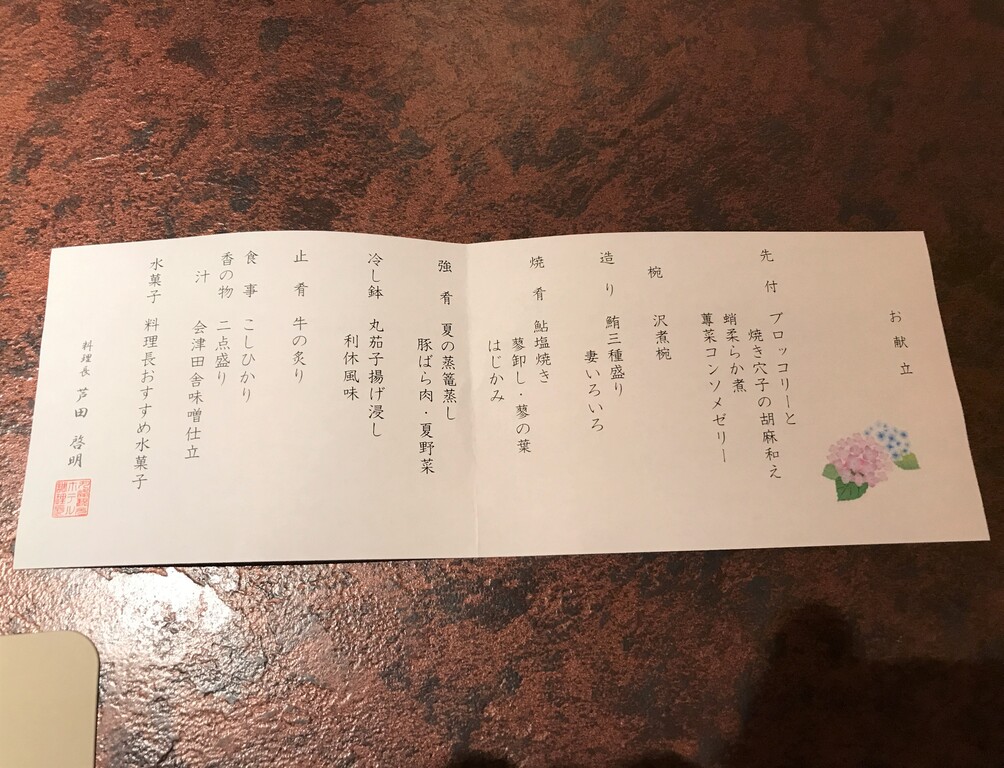 お献立
先付 ブロッコリーと
焼き穴子の胡麻和え
蛸柔らか煮
蓴菜コンソメゼリー
椀 沢煮椀
造り 鮪三種盛り
妻いろいろ
焼肴 鮎塩焼き
蓼卸し・蓼の葉
はじかみ
強肴 夏の蒸篭蒸し
豚ばら肉・夏野菜
冷し鉢 丸茄子揚げ浸し
利休風味
止肴 牛の炙り
食事 こしひかり
香の物 二点盛り
汁 会津田舎味噌仕立
水菓子 料理長おすすめ水菓子
料理長 芦田 啓明
ホテル